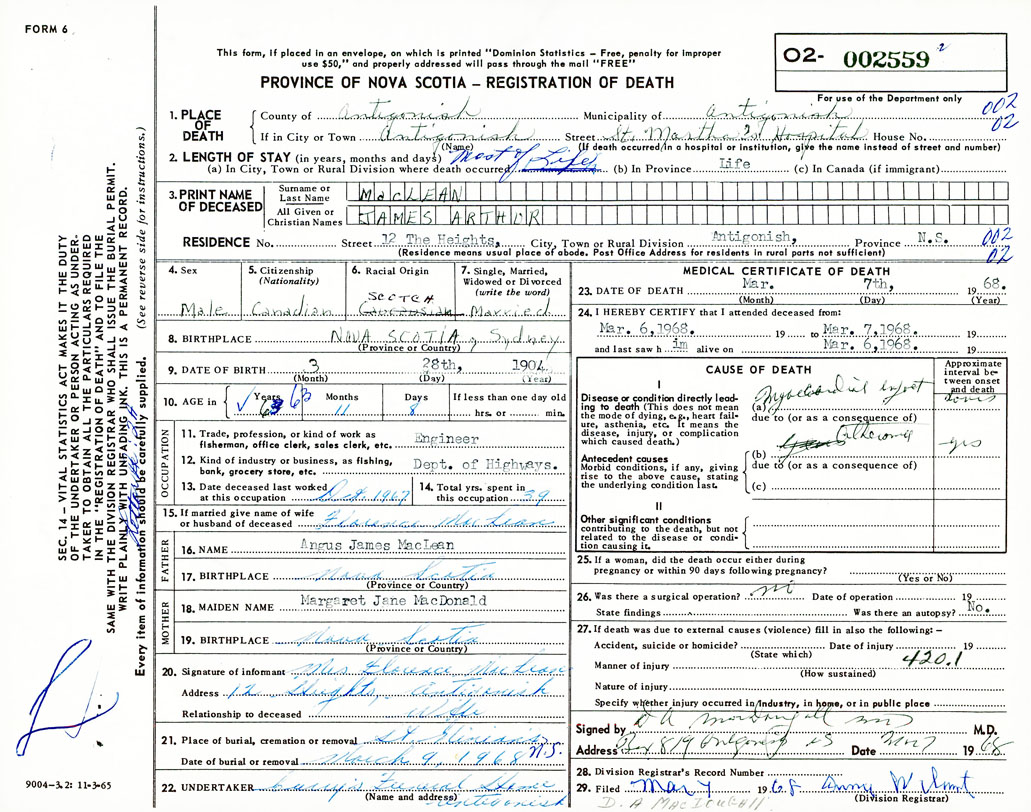 FORM 6
This form, if placed in an envelope, on which is printed "Dominion Statistics – Free, penalty for improper
use $50," and properly addressed will pass through the mail "FREE"
PROVINCE OF NOVA SCOTIA – REGISTRATION OF DEATH
O2- 002559 2
For use of the Department only
002
02
1. PLACE OF DEATH
County of Antigonish Municipality of Antigonish
If in City or Town Antigonish Street St. Martha's Hospital House No.
(Name) (If death occurred in a hospital or institution, give the name instead of street and number)
2. LENGTH OF STAY (in years, months and days) Most of Life
(a) In City, Town or Rural Division where death occurred (b) In Province Life (c) In Canada (if immigrant)
3. PRINT NAME OF DECEASED
Surname or Last Name MacLEAN
All Given or Christian Names JAMES ARTHUR
RESIDENCE No. Street 12 The Heights, City, Town or Rural Division Antigonish, Province N.S. 002
(Residence means usual place of abode. Post Office Address for residents in rural parts not sufficient) 02
4. Sex Male
5. Citizenship (Nationality) Canadian
6. Racial Origin SCOTCH
7. Single, Married, Widowed or Divorced (write the word) Married
8. BIRTHPLACE NOVA SCOTIA, Sydney
(Province or Country)
9. DATE OF BIRTH 3 28th, 1904
(Month) (Day) (Year)
10. AGE in Years 63 Months 11 Days 8 If less than one day old
hrs. or min.
OCCUPATION
11. Trade, profession, or kind of work as fisherman, office clerk, sales clerk, etc. Engineer
12. Kind of industry or business, as fishing, bank, grocery store, etc. Dept. of Highways.
13. Date deceased last worked at this occupation Oct. 1967
14. Total yrs. spent in this occupation 39
15. If married give name of wife or husband of deceased Florence MacLean
FATHER
16. NAME Angus James MacLean
17. BIRTHPLACE Nova Scotia
(Province or Country)
MOTHER
18. MAIDEN NAME Margaret Jane MacDonald
19. BIRTHPLACE Nova Scotia
(Province or Country)
20. Signature of informant Mrs Florence MacLean
Address 12 Heights, Antigonish
Relationship to deceased Wife
21. Place of burial, cremation or removal St. Ninian's N.S.
Date of burial or removal March 9, 1968
22. UNDERTAKER Curry's Funeral Home
(Name and address) Antigonish
MEDICAL CERTIFICATE OF DEATH
23. DATE OF DEATH Mar. 7th, 1968.
(Month) (Day) (Year)
24. I HEREBY CERTIFY that I attended deceased from:
Mar. 6,1968. 19 to Mar. 7,1968. 19
and last saw h im alive on Mar. 6,1968. 19
CAUSE OF DEATH
Approximate interval between onset and death
I
Disease or condition directly leading to death (This does not mean the mode of dying, e.g., heart failure, asthenia, etc. It means the disease, injury, or complication which caused death.)
(a) Myocardial infarct
due to (or as a consequence of)
Antecedent causes
Morbid conditions, if any, giving rise to the above cause, stating the underlying condition last.
(b) yrs
due to (or as a consequence of)
(c)
II
Other significant conditions contributing to the death, but not related to the disease or condition causing it.
25. If a woman, did the death occur either during
pregnancy or within 90 days following pregnancy?
(Yes or No)
26. Was there a surgical operation? Date of operation 19
State findings Was there an autopsy? No.
27. If death was due to external causes (violence) fill in also the following: –
Accident, suicide or homicide? Date of injury 19
(State which)
Manner of injury 420.1
(How sustained)
Nature of injury
Specify whether injury occurred in Industry, in home, or in public place
Signed by D A MacDougall MD M.D.
Address Box 819 Antigonish NS Date Mar 7 1968
28. Division Registrar's Record Number
29. Filed Mar 7 1968
(Division Registrar)
D. A MACDOUGALL
SEC. 14 – VITAL STATISTICS ACT MAKES IT THE DUTY
OF THE UNDERTAKER OR PERSON ACTING AS UNDER-
TAKER TO OBTAIN ALL THE PARTICULARS REQUIRED
IN THE "REGISTRATION OF DEATH" AND TO FILE THE
SAME WITH THE DIVISION REGISTRAR WHO SHALL ISSUE THE BURIAL PERMIT.
WRITE PLAINLY WITH UNFADING INK. THIS IS A PERMANENT RECORD.
Every item of information should be carefully supplied. (See reverse side for instructions.)
9004-3.2: 11-3-65